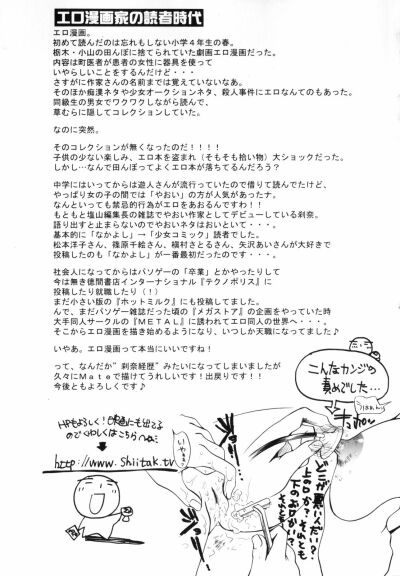 エロ漫画家の読者時代
エロ漫画。
初めて読んだのは忘れもしない小学４年生の春。
栃木・小山の田んぼに捨てられていた劇画エロ漫画だった。
内容は町医者が患者の女性に器具を使って
いやらしいことをするんだけど・・・
さすがに作家さんの名前までは覚えていないなあ。
そのほか痴漢ネタや少女オークションネタ、殺人事件にエロなんてのもあった。
同級生の男女でワクワクしながら読んで、
草むらに隠してコレクションしていた。
なのに突然。
そのコレクションが無くなったのだ！！！！
子供の少ない楽しみ、エロ本を盗まれ（そもそも拾い物）大ショックだった。
しかし・・・なんで田んぼってよくエロ本が落ちてるんだろう？
中学にはいってからは遊人さんが流行っていたので借りて読んでたけど、
やっぱり女の子の間では「やおい」の方が人気があったナ。
なんといっても禁忌的行為がエロをあおるんですわ！！
もともと塩山編集長の雑誌でやおい作家としてデビューしている刹奈。
語り出すと止まらないのでやおいネタはおいといて・・・。
基本的に「なかよし」→「少女コミック」読者でした。
松本洋子さん、篠原千絵さん、槇村さとるさん、矢沢あいさんが大好きで
投稿したのも「なかよし」が一番最初だったのです・・・。
社会人になってからはパソゲーの「卒業」とかやったりして
今は無き徳間書店インターナショナル『テクノポリス』に
投稿したり就職したり（！）
まだ小さい版の『ホットミルク』にも投稿してました。
んで、まだパソゲー雑誌だった頃の『メガストア』の企画をやっていた時
大手同人サークルの『ＭＥＴＡＬ』に誘われてエロ同人の世界へ・・・。
そこからエロ漫画を描き始めるようになり、いつしか天職になってました♪
いやあ。エロ漫画って本当にいいですね！
って、なんだか“刹奈経歴”みたいになってしまいましたが
久々にＭａｔｅで描けてうれしいです！出戻りです！！
今後ともよろしくです♪
こんなカンジの
責めでした…
HPもよろしく！
のでくわしくはこちらへ
http://www.Shiitak.tv
いやぁ
どこが悪いんだい？
上の口か？それとも
下のお口かい？